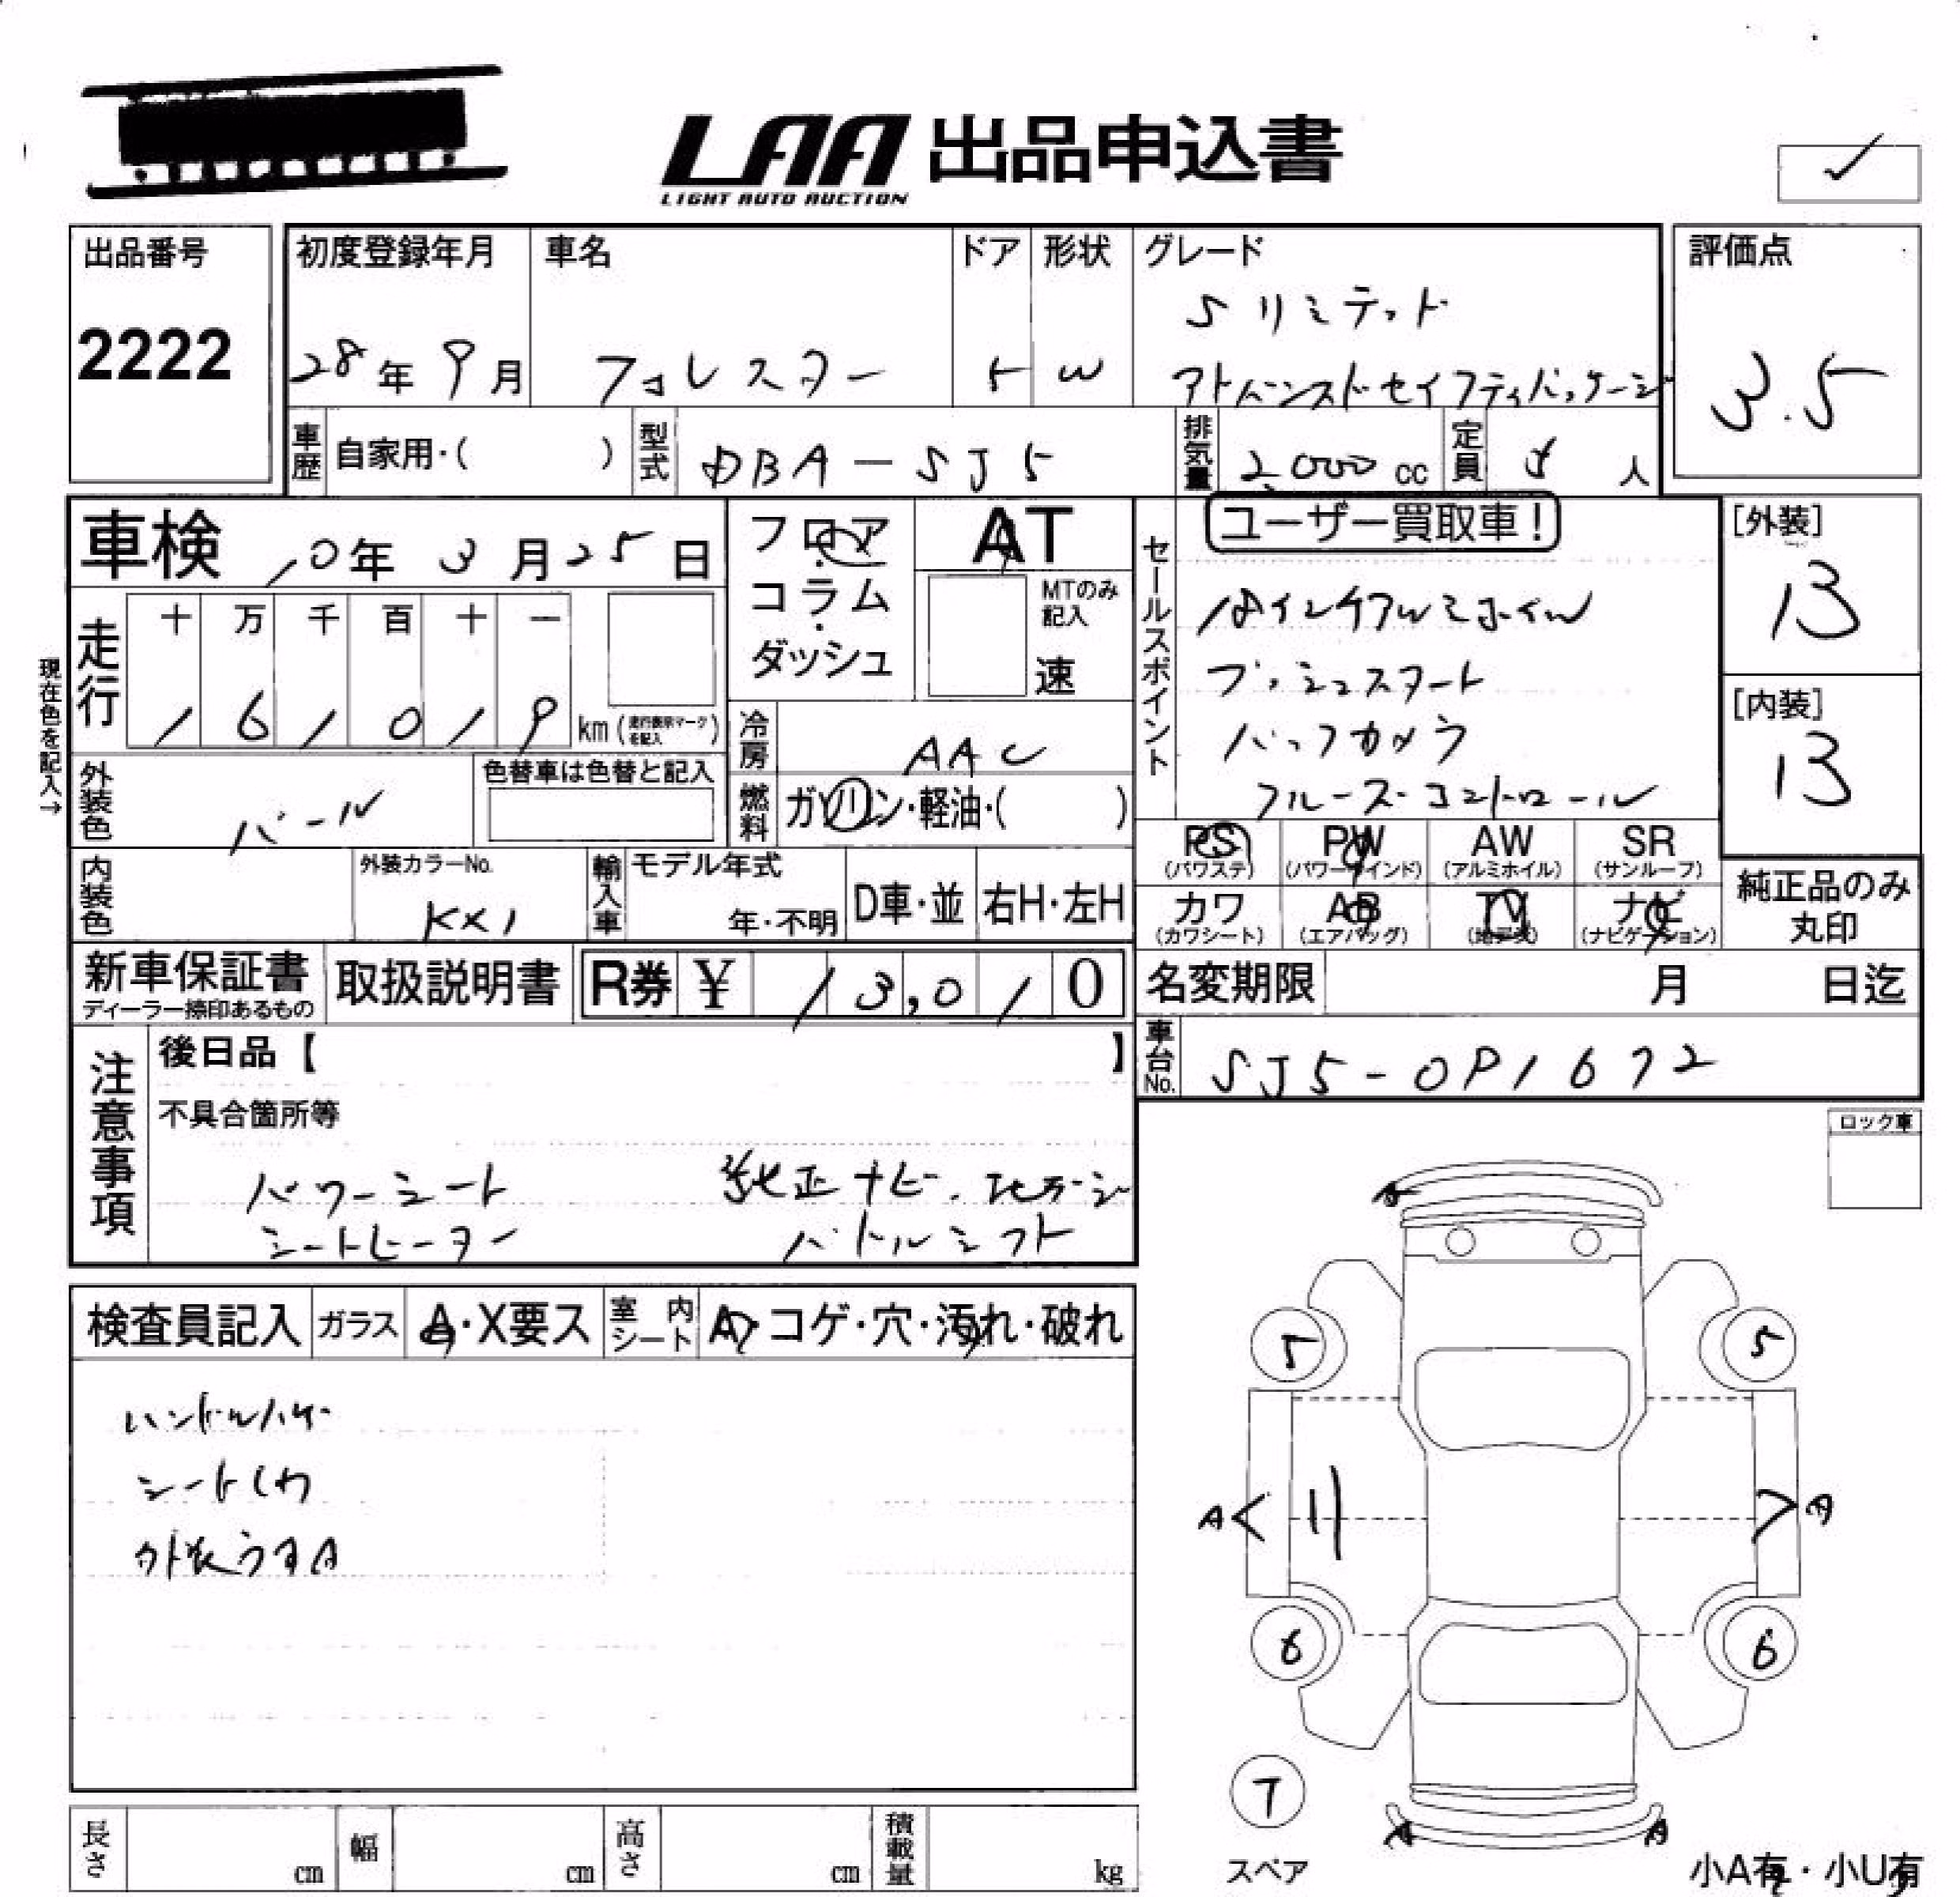 LAA 出品申込書
LIGHT AUTO AUCTION
出品番号
2222
初度登録年月
28年9月
車名
フォレスター
ドア
5
形状
W
グレード
Sリミテッド
アドバンスドセイフティパッケージ
評価点
3.5
車歴 自家用・( )
型式 DBA-SJ5
排気量 2,000 cc
定員 5人
車検 10年3月25日
フロア・コラム・ダッシュ
AT
MTのみ記入
速
セールスポイント
ユーザー買取車!
18インチアルミホイル
プッシュスタート
バックカメラ
クルーズコントロール
[外装]
13
[内装]
13
現在色を記入→
走行
十 万 千 百 十 一
1 6 1 0 1 9 km (走行表示マークを記入)
冷房 AAC
外装色 パール
色替車は色替と記入
燃料 ガソリン・軽油・( )
PS (パワステ)
PW (パワーウインド)
AW (アルミホイル)
SR (サンルーフ)
カワ (カワシート)
AB (エアバッグ)
TV (地デジ)
ナビ (ナビゲーション)
純正品のみ丸印
内装色
外装カラーNo.
KX1
輸入車
モデル年式
年・不明
D車・並
右H・左H
新車保証書
ディーラー捺印あるもの
取扱説明書
R券 ¥ 13,010
名変期限 月 日迄
車台No. SJ5-091672
注意事項
後日品【 】
不具合箇所等
パワーシート 純正ナビ、
シートヒーター パドルシフト
ロック車
検査員記入 ガラス A・X要ス 室内シート A・コゲ・穴・汚れ・破れ
ハンドルハゲ
シートシワ
外装うすA
A
5 5
A A
6 6
7
スペア
A A
小A有・小U有
長さ cm
幅 cm
高さ cm
積載量 kg